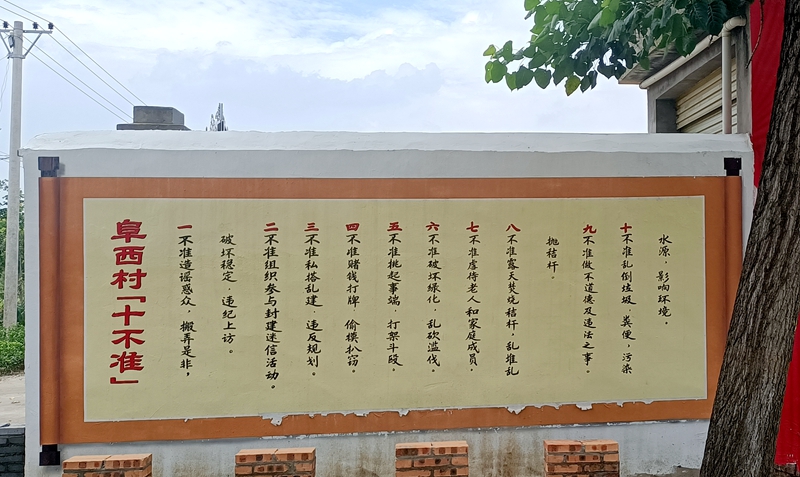 阜西村「十不准」
一不准造谣惑众，搬弄是非，
破坏稳定，违纪上访。
二不准组织参与封建迷信活动。
三不准私搭乱建，违反规划。
四不准赌钱打牌，偷摸扒窃。
五不准挑起事端，打架斗殴。
六不准破坏绿化，乱砍滥伐。
七不准虐待老人和家庭成员。
八不准露天焚烧秸秆，乱堆乱
抛秸秆。
九不准做不道德及违法之事。
十不准乱倒垃圾，粪便，污染
水源，影响环境。